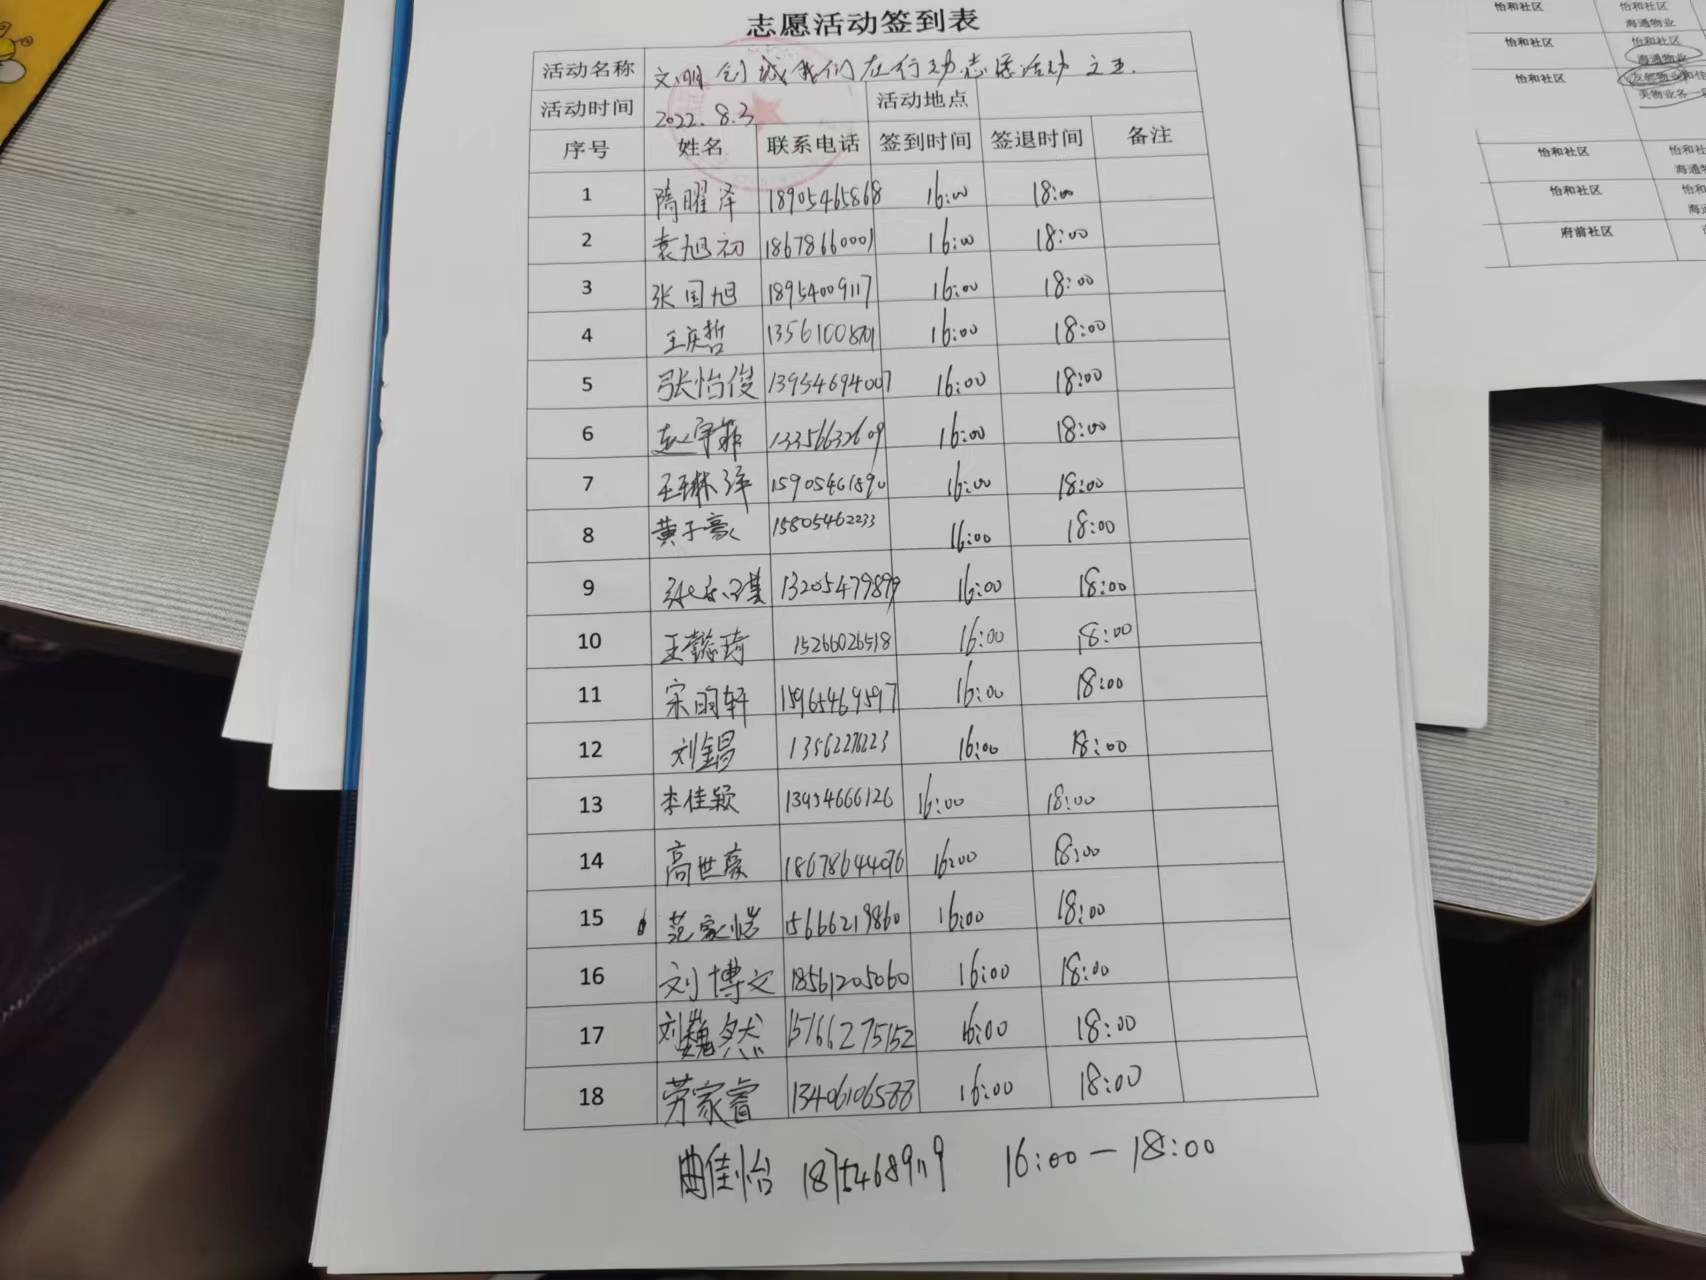 志愿活动签到表
活动名称 文明创城我们在行动志愿活动之五.
活动时间 2022.8.3 活动地点
序号 姓名 联系电话 签到时间 签退时间 备注
1 隋曜泽 18905465868 16:00 18:00
2 袁旭初 18678660001 16:00 18:00
3 张国旭 18954009117 16:00 18:00
4 王庆哲 16:00 18:00
5 张怡俊 13954694007 16:00 18:00
6 赵宇菲 13356632609 16:00 18:00
7 王琳泽 15905461890 16:00 18:00
8 黄子豪 15805462233 16:00 18:00
9 13205479899 16:00 18:00
10 王懿琦 15266026518 16:00 18:00
11 宋昀轩 15965469597 16:00 18:00
12 刘锠 13562276223 16:00 18:00
13 李佳颖 13454666126 16:00 18:00
14 高世豪 18678644076 16:00 18:00
15 范家皓 15666219860 16:00 18:00
16 刘博文 18561205060 16:00 18:00
17 刘巍然 15166275152 16:00 18:00
18 劳家睿 13406106588 16:00 18:00
曲佳怡 18754689119 16:00-18:00
怡和社区 怡和社区
海通物业
怡和社区 怡和社区
海通物业
怡和社区
怡和社区
怡和社区
府前社区